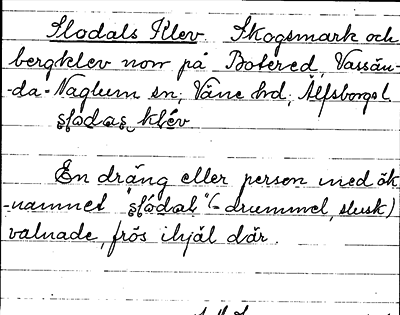 Slodals Klev. Skogsmark och
bergklev norr på Botered, Vassän-
-da-Naglum sn; Väne hd; Älfsborgs l.
slodas klév
En dräng eller person med ök-
-namnet "slódal" (= drummel, slusk)
valnade, frös ihjäl där.